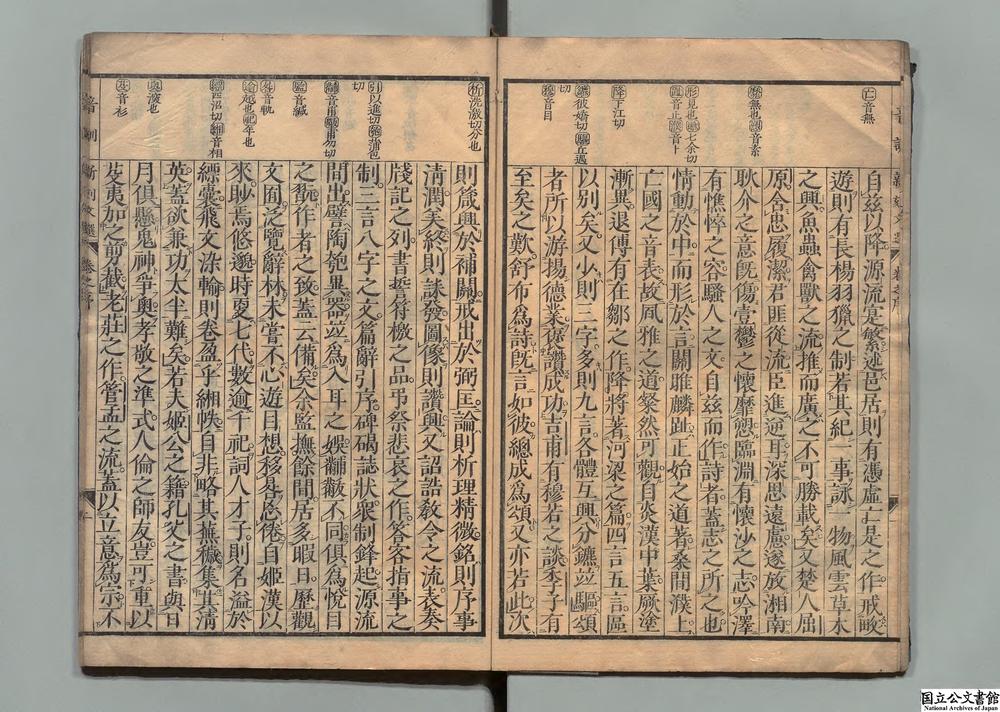 亡音無
靡無也愬音素
形見也雎七余切
趾音止濮音卜
降下江切
鑣彼嬌切驅丘遇
切
穆音目
自玆以降源流寔繁述邑居則有憑虛亡是之作戒畋
遊則有長楊羽獵之制若其紀一事詠一物風雲草木
之興魚蟲禽獸之流推而廣之不可勝載矣又楚人屈
原含忠履潔君匪從流臣進逆耳深思遠慮遂放湘南
耿介之意旣傷壹鬱之懷靡愬臨淵有懷沙之志吟澤
有憔悴之容騷人之文自玆而作詩者蓋志之所之也
情動於中而形於言關雎麟趾正始之道著桑間濮上
亡國之音表故風雅之道粲然可觀自炎漢中葉厥塗
漸異退傅有在鄒之作降將著河梁之篇四言五言區
以別矣又少則三字多則九言各體互興分鑣並驅頌
者所以游揚德業褒讚成功吉甫有穆若之談季子有
至矣之歎舒布爲詩旣言如彼總成爲頌又亦若此次
析洗激切分也
引以進切匏蒲包
切
黼音甫黻甫勿切
監音鑑
晷音軌
逾越也祀年也
縹匹沼切緗音相
奧深也
芟音衫
則箴興於補闕戒出於弼匡論則析理精微銘則序事
淸潤美終則誄發圖像則讚興又詔誥敎令之流表奏
牋記之列書誓符檄之品弔祭悲哀之作答客指事之
制三言八字之文篇辭引序碑碣誌狀衆制鋒起源流
間出譬陶匏異器並爲入耳之娛黼黻不同俱爲悅目
之翫作者之致蓋云備矣余監撫餘閒居多暇日歷觀
文囿泛覽辭林未嘗不心遊目想移晷忘倦自姬漢以
來眇焉悠邈時更七代數逾千祀詞人才子則名溢於
縹囊飛文染翰則卷盈乎緗帙自非略其蕪穢集其淸
英蓋欲兼功太半難矣若夫姬公之籍孔父之書與日
月俱懸鬼神爭奧孝敬之準式人倫之師友豈可重以
芟夷加之剪截老莊之作管孟之流蓋以立意爲宗不
国立公文書館
National Archives of Japan